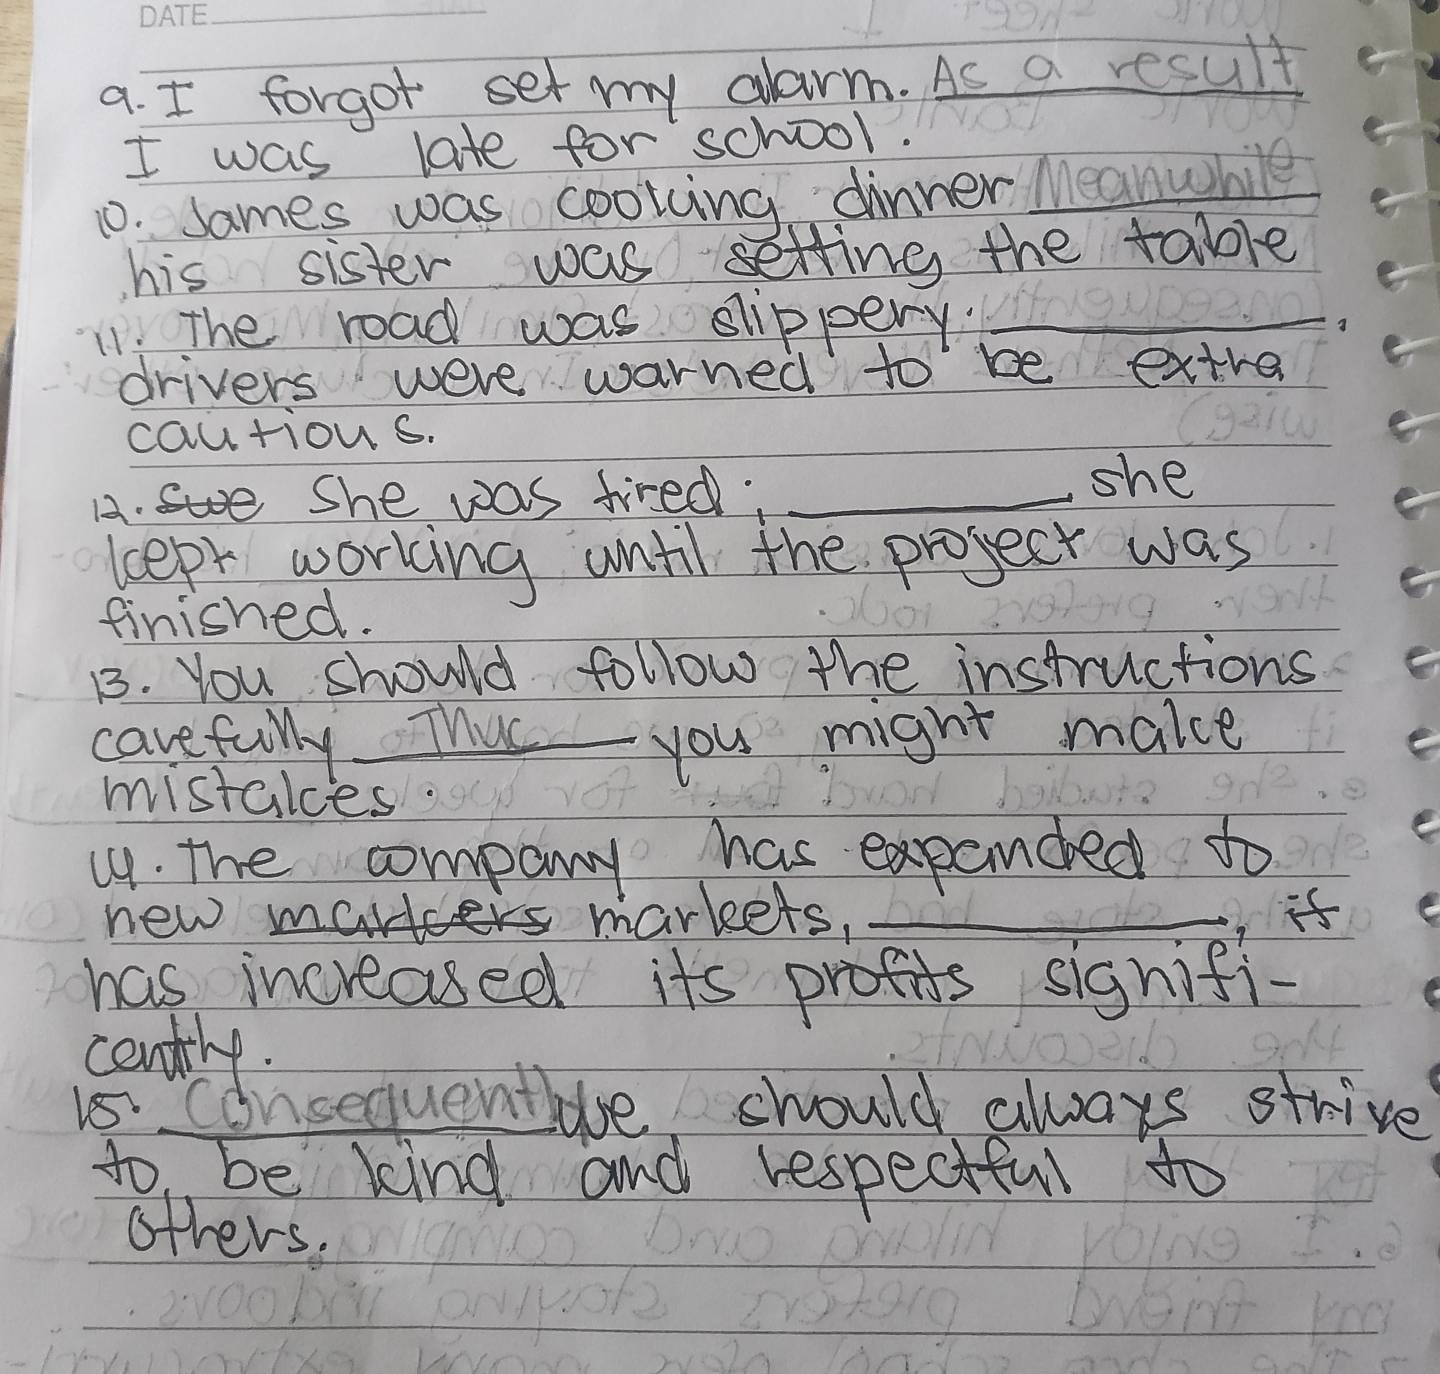 DATE
9. I forgot set my alarm. As a result
I was late for school.
10. James was cooking dinner Meanwhile
his sister was setting the table
11. The road was slippery. ____________,
drivers were warned to be extra
cautious.
12. She was tired; ____________ she
kept working until the project was
finished.
13. You should follow the instructions
carefully Thus you might make
mistakes.
14. The company has expanded to
new markets, ____________, it
has increased its profits signifi-
cantly.
15. Consequently we should always strive
to be kind and respectful to
others.